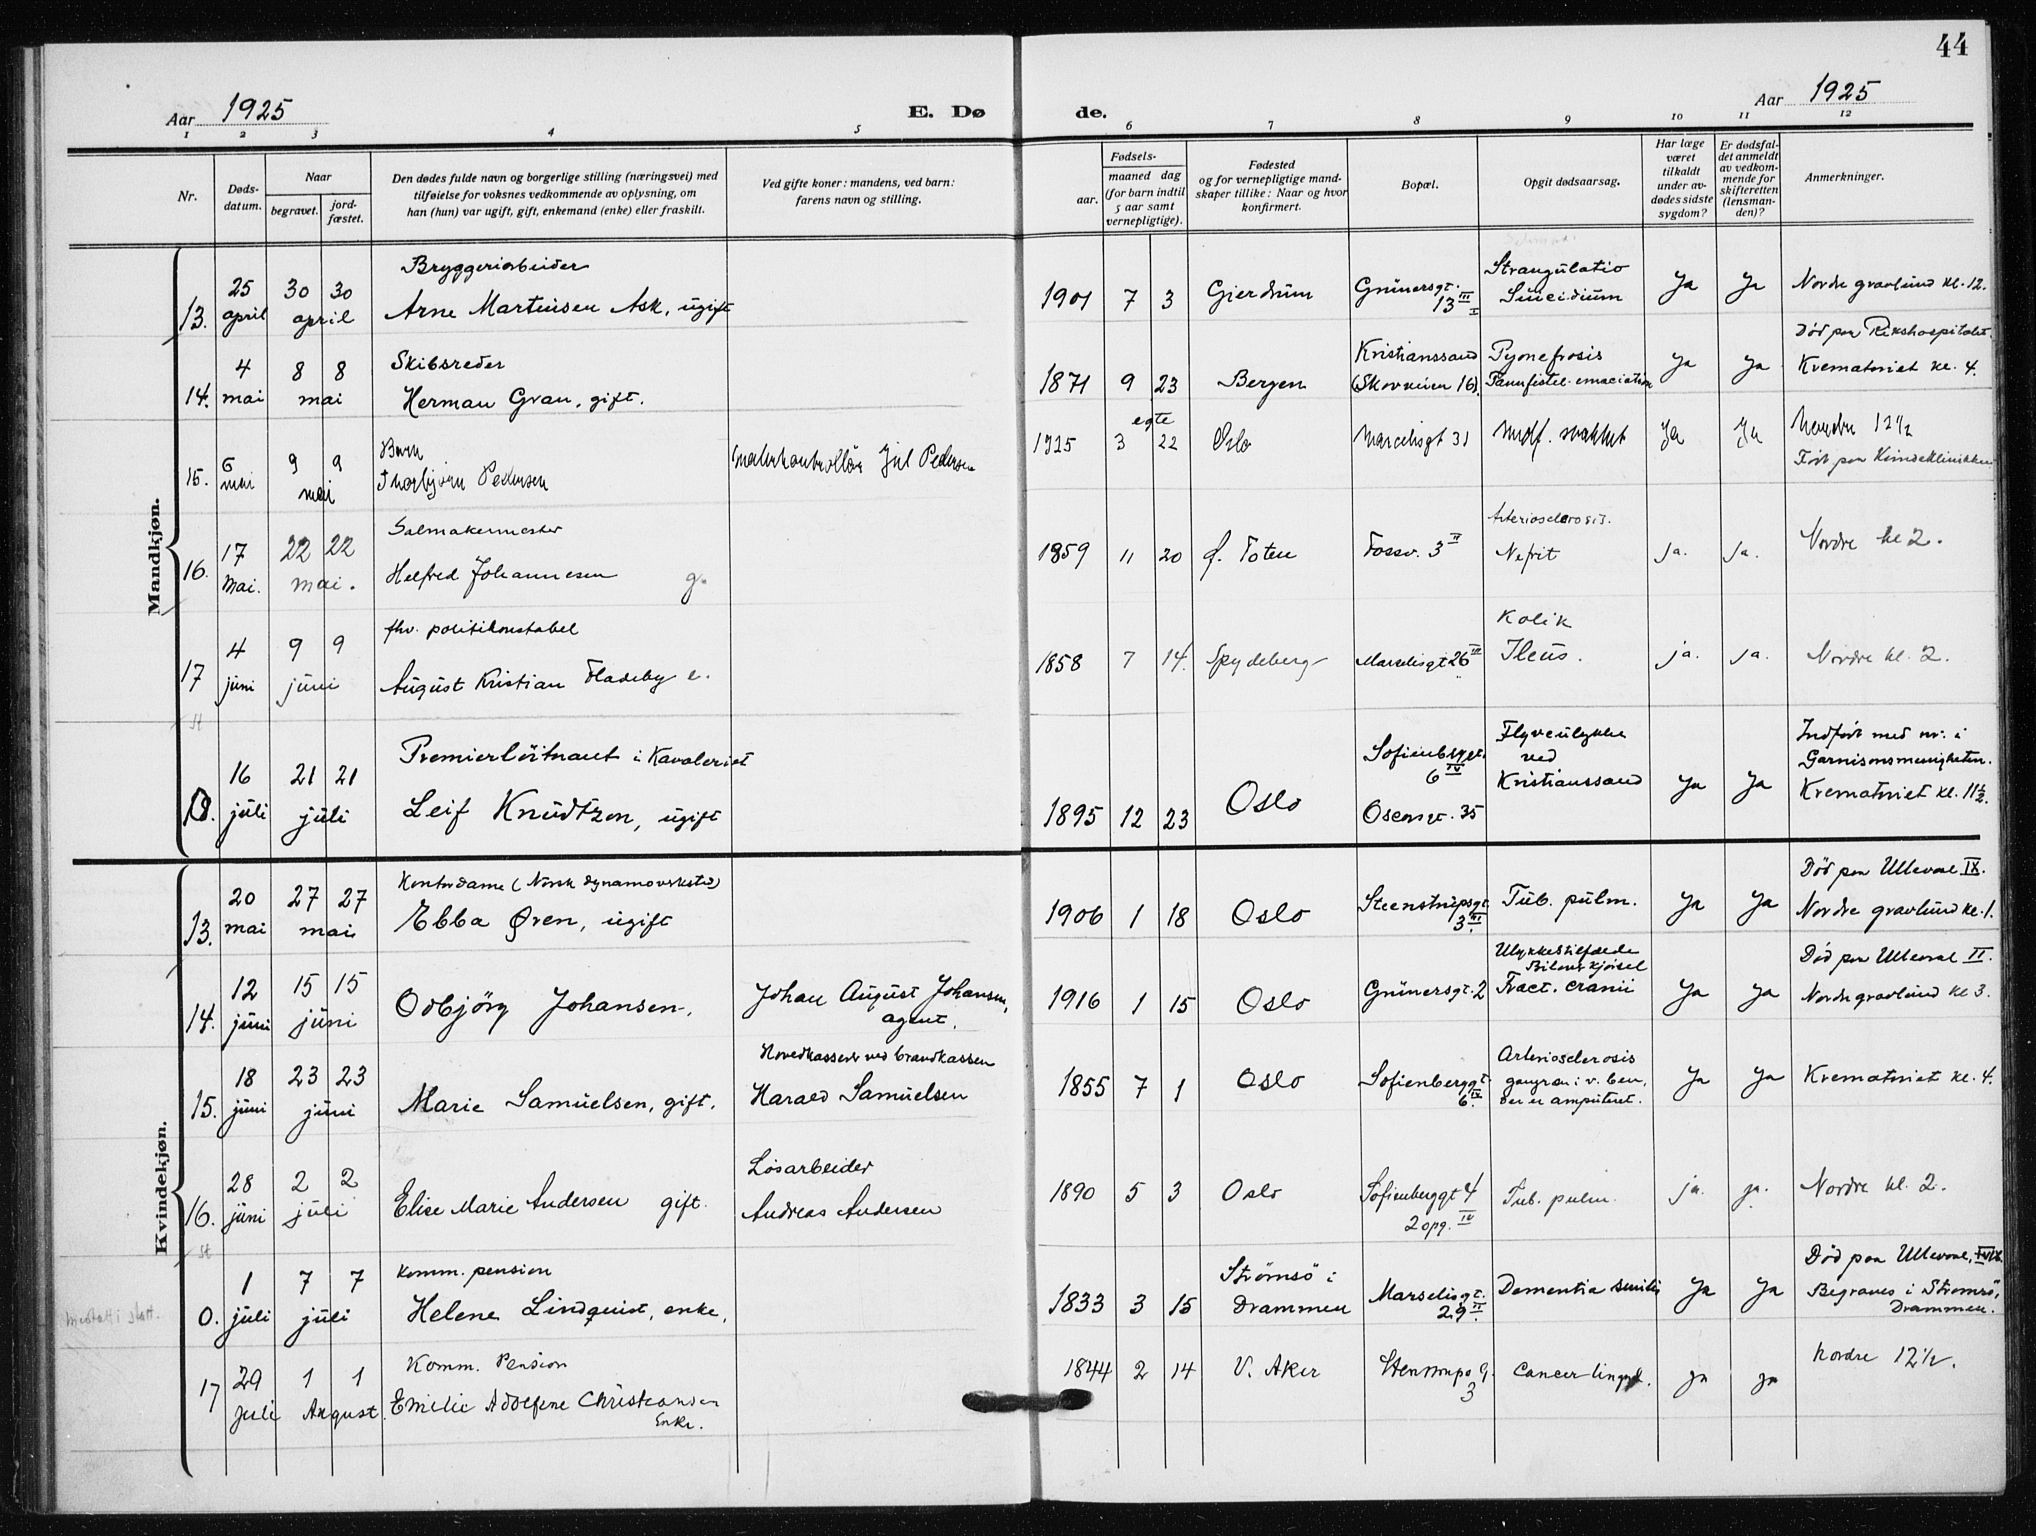 44
Aar 1925
E. Dø
de.
Aar 1925
1 2 3 4 5 6 7 8 9 10 11 12
Nr.
Døds-
datum.
Naar
begravet.
jord-
fæstet.
Den dødes fulde navn og borgerlige stilling (næringsvei) med
tilføielse for voksnes vedkommende av oplysning, om
han (hun) var ugift, gift, enkemand (enke) eller fraskilt.
Ved gifte koner: mandens, ved barn:
farens navn og stilling.
Fødsels-
aar.
maaned dag
(for barn indtil
5 aar samt
vernepligtige).
Fødested
og for vernepligtige mand-
skaper tillike: Naar og hvor
konfirmert.
Bopæl.
Opgit dødsaarsag.
Har læge
været
tilkaldt
under av-
dødes sidste
sygdom?
Er dødsfal-
det anmeldt
av vedkom-
mende for
skifteretten
(lensman-
den)?
Anmerkninger.
Mandkjøn.
13. 25 april 30 30 april
Bryggeriarbeider
Arne Martinsen Ask, ugift
1901 7 3 Gjerdrum
Grünersgt. 13 III I
Strangulatio
Suicidium
Ja Ja
Nordre gravlund kl. 12.
14. 4 mai 8 8 mai
Skibsreder
Herman Gran, gift.
1871 9 23 Bergen
Kristianssand
(Skovveien 16).
Pyonefrosis
emaciation
Ja Ja
Død paa Rikshospitalet.
Krematoriet kl. 4.
15. 6 mai 9 9 mai
Barn
Thorbjørn Pedersen
Pedersen
1925 3 22 egte Oslo
Marcelisgt 31
Medf. svakhet
Ja Ja
Nordre 12 1/2
Født paa Kvindeklinikken
16. 17 Mai. 22 22 mai.
Salmakermester
Helfred Johannesen g.
1859 11 20 Ø. Toten
Fossv. 3 II
Arteriosclerosis.
Nefrit
Ja. Ja.
Nordre kl 2.
17 4 juni 9 9 juni
fhv. politikonstabel
August Kristian Fladeby e.
1858 7 14. Spydeberg
Marselisgt 26 III
Kolik
Ileus.
ja. ja.
Nordre kl. 2.
st
18. 16 juli 21 21 juli
Premierløitnant i Kavaleriet
Leif Knudtzon, ugift
1895 12 23 Oslo
Sofienbggt.
6 IV
Oscarsgt. 35
Flyveulykke
ved
Kristianssand
Ja Ja
Indført med nr. i
Garnisonsmenigheten.
Krematoriet kl. 11 1/2.
Kvindekjøn.
13. 20 mai 27 27 mai
Kontordame (Norsk dynamoverksted)
Ebba Øren, ugift
1906 1 18 Oslo
Steenstrupsgt.
3 III.
Tub. pulm.
Ja Ja
Død paa Ullevaal IX.
Nordre gravlund kl. 1.
14. 12 juni 15 15 juni
Odbjörg Johansen.
Johan August Johansen,
agent.
1916 1 15 Oslo
Grünersgt. 2
Ulykkestilfælde
Biloverkjørsel
Fract. cranii
Ja Ja
Død paa Ullevaal II.
Nordre gravlund kl 3.
15. 18 juni 23 23 juni
Marie Samuelsen, gift.
Hovedkasserer ved brandkassen
Harald Samuelsen
1855 7 1 Oslo
Sofienberggt.
6 IV.
Arteriosclerosis
gangræn i v. ben,
der er amputeret.
Ja Ja
Krematoriet kl. 4.
16. 28 juni 2 2 juli
Elise Marie Andersen gift.
Løsarbeider
Andreas Andersen
1890 5 3 Oslo
Sofienberggt 4
2 opg. IV
Tub. pulm.
ja. ja.
Nordre kl. 2.
st
0. 1 juli 7 7 juli
Komm. pension
Helene Lindquist, enke,
1833 3 15
Strømsö i
Drammen
Marselisgt.
29 II.
Dementia senilis
Ja Ja
Død paa Ullevaal,
Begraves i Strømsö,
Drammen.
17 29 juli 1 1 August
Komm. Pension
Emilie Adolfine Christiansen
Enke.
1844 2 14 V. Aker
3
Cancer
ja ja
Nordre 12 1/2.